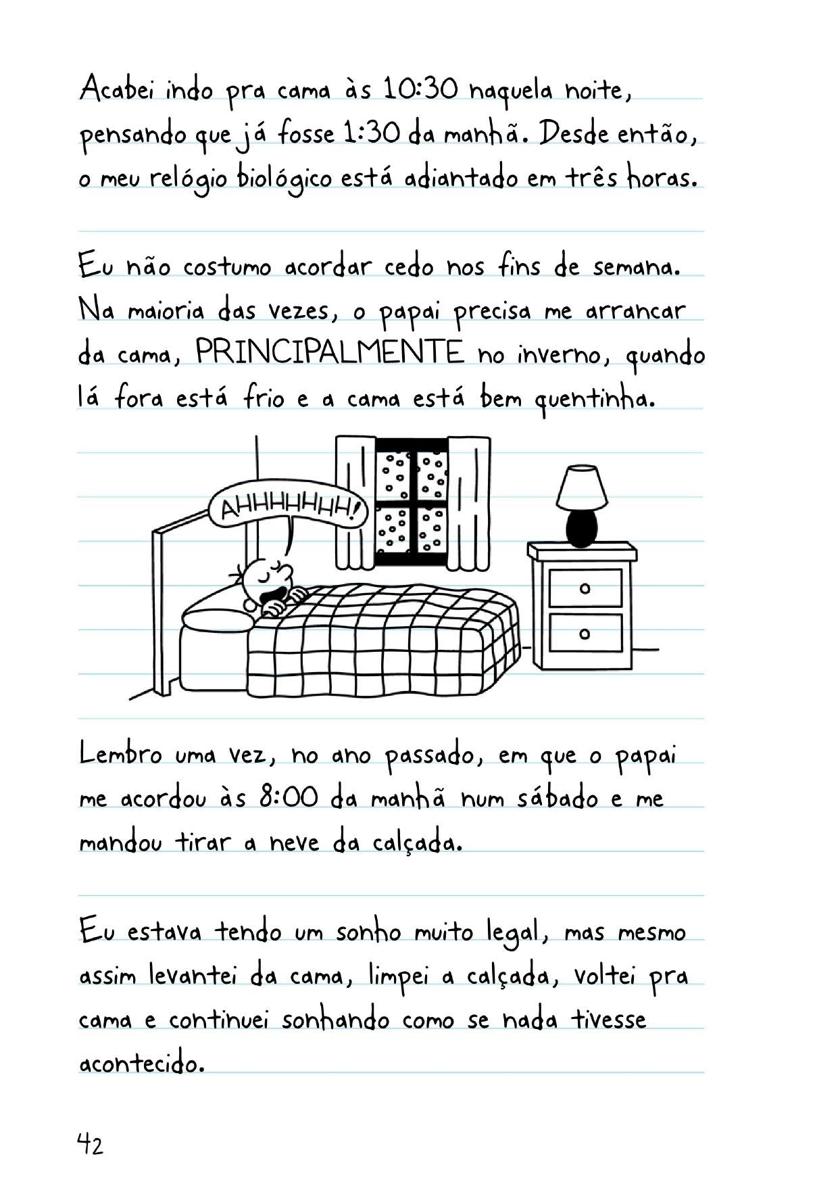 Acabei indo pra cama às 10:30 naquela noite,
pensando que já fosse 1:30 da manhã. Desde então,
o meu relógio biológico está adiantado em três horas.
Eu não costumo acordar cedo nos fins de semana.
Na maioria das vezes, o papai precisa me arrancar
da cama, PRINCIPALMENTE no inverno, quando
lá fora está frio e a cama está bem quentinha.
AHHHHHHH!
Lembro uma vez, no ano passado, em que o papai
me acordou às 8:00 da manhã num sábado e me
mandou tirar a neve da calçada.
Eu estava tendo um sonho muito legal, mas mesmo
assim levantei da cama, limpei a calçada, voltei pra
cama e continuei sonhando como se nada tivesse
acontecido.
42